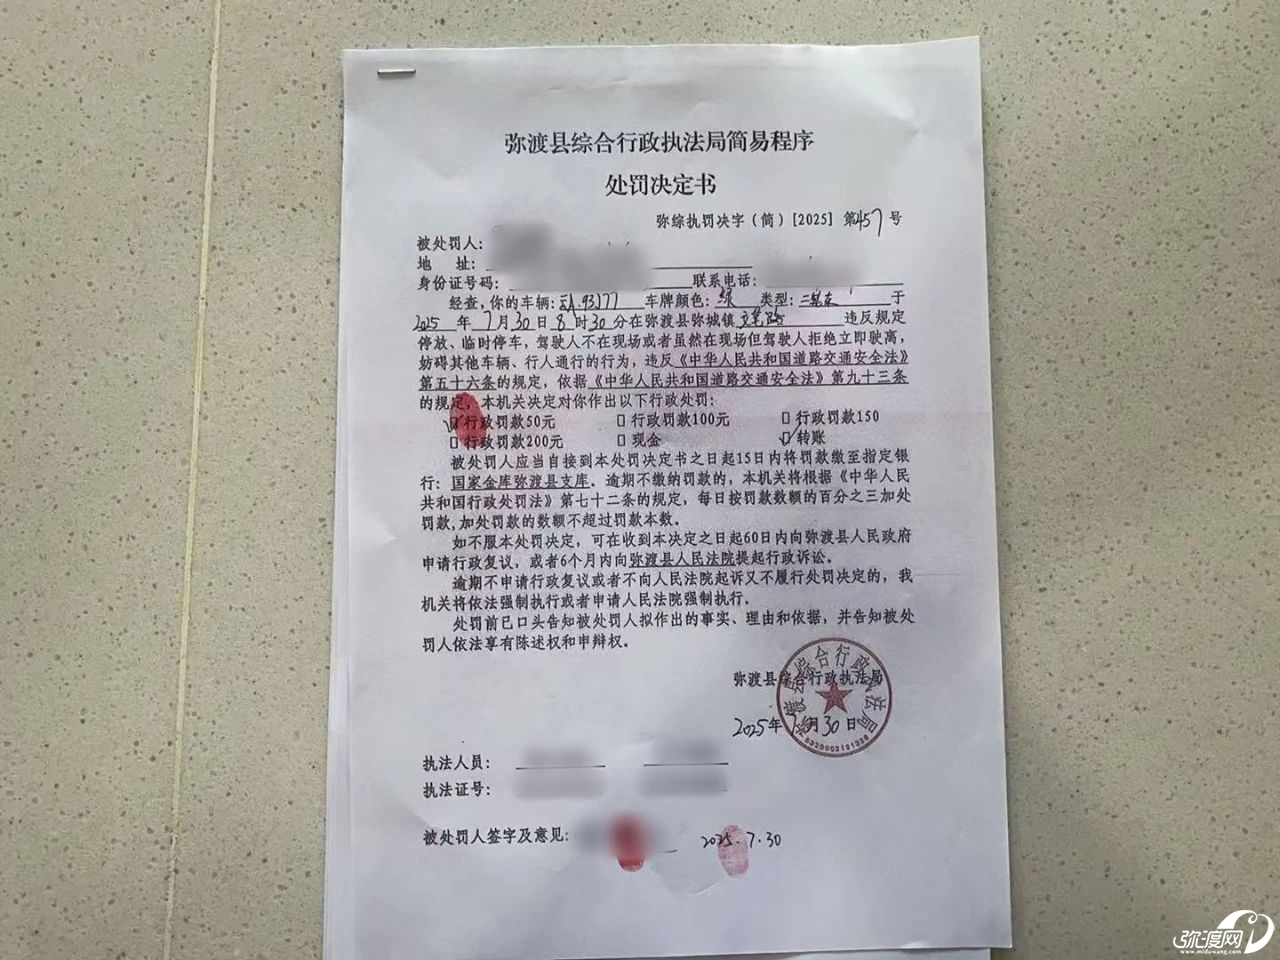 弥渡县综合行政执法局简易程序
处罚决定书
弥综执罚决字（简）[2025] 第457号
被处罚人：
地 址：
身份证号码： 联系电话：
经查，你的车辆：云A.93177 车牌颜色：绿 类型：二轮车 于
2025 年 7 月 30 日 8 时 30 分在弥渡县弥城镇 文笔路 违反规定
停放、临时停车，驾驶人不在现场或者虽然在现场但驾驶人拒绝立即驶离，
妨碍其他车辆、行人通行的行为，违反《中华人民共和国道路交通安全法》
第五十六条的规定，依据《中华人民共和国道路交通安全法》第九十三条
的规定，本机关决定对你作出以下行政处罚：
☑行政罚款50元 □ 行政罚款100元 □ 行政罚款150
□ 行政罚款200元 □ 现金 ☑ 转账
被处罚人应当自接到本处罚决定书之日起15日内将罚款缴至指定银
行：国家金库弥渡县支库。逾期不缴纳罚款的，本机关将根据《中华人民
共和国行政处罚法》第七十二条的规定，每日按罚款数额的百分之三加处
罚款，加处罚款的数额不超过罚款本数。
如不服本处罚决定，可在收到本决定之日起60日内向弥渡县人民政府
申请行政复议，或者6个月内向弥渡县人民法院提起行政诉讼。
逾期不申请行政复议或者不向人民法院起诉又不履行处罚决定的，我
机关将依法强制执行或者申请人民法院强制执行。
处罚前已口头告知被处罚人拟作出的事实、理由和依据，并告知被处
罚人依法享有陈述权和申辩权。
弥渡县综合行政执法局
2025年7月30日
执法人员：
执法证号：
被处罚人签字及意见： 2025.7.30
弥渡网
www.miduwang.com